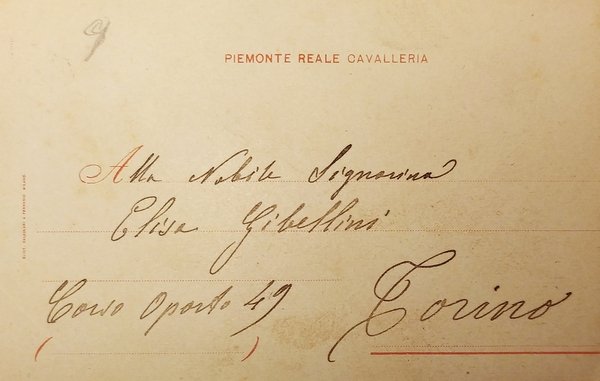 9
PIEMONTE REALE CAVALLERIA
Alla Nobile Signorina
Elisa Gibellini
Corso Oporto 49
Torino
( )